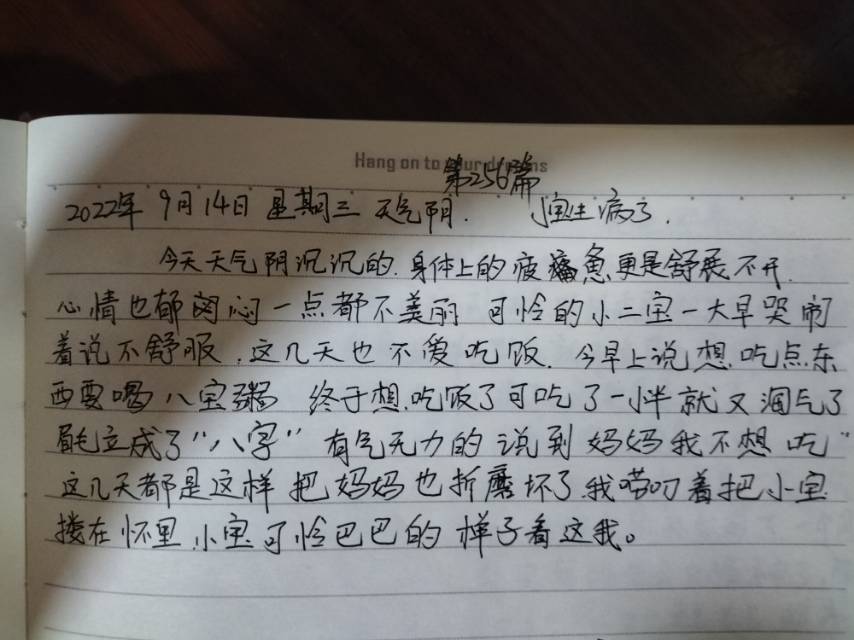 Hang on to your dreams
第256篇
2022年 9月14日 星期三 天气阴. 小宝生病了.
今天天气阴沉沉的.身体上的疲惫更是舒展不开.
心情也郁闷闷一点都不美丽 可怜的小二宝一大早哭闹
着说不舒服.这几天也不爱吃饭.今早上说想吃点东
西要喝八宝粥 终于想吃饭了可吃了一小半就又淘气了
眉毛立成了“八字”有气无力的说到妈妈我不想吃”
这几天都是这样把妈妈也折磨坏了.我唠叨着把小宝
搂在怀里.小宝可怜巴巴的样子看这我。